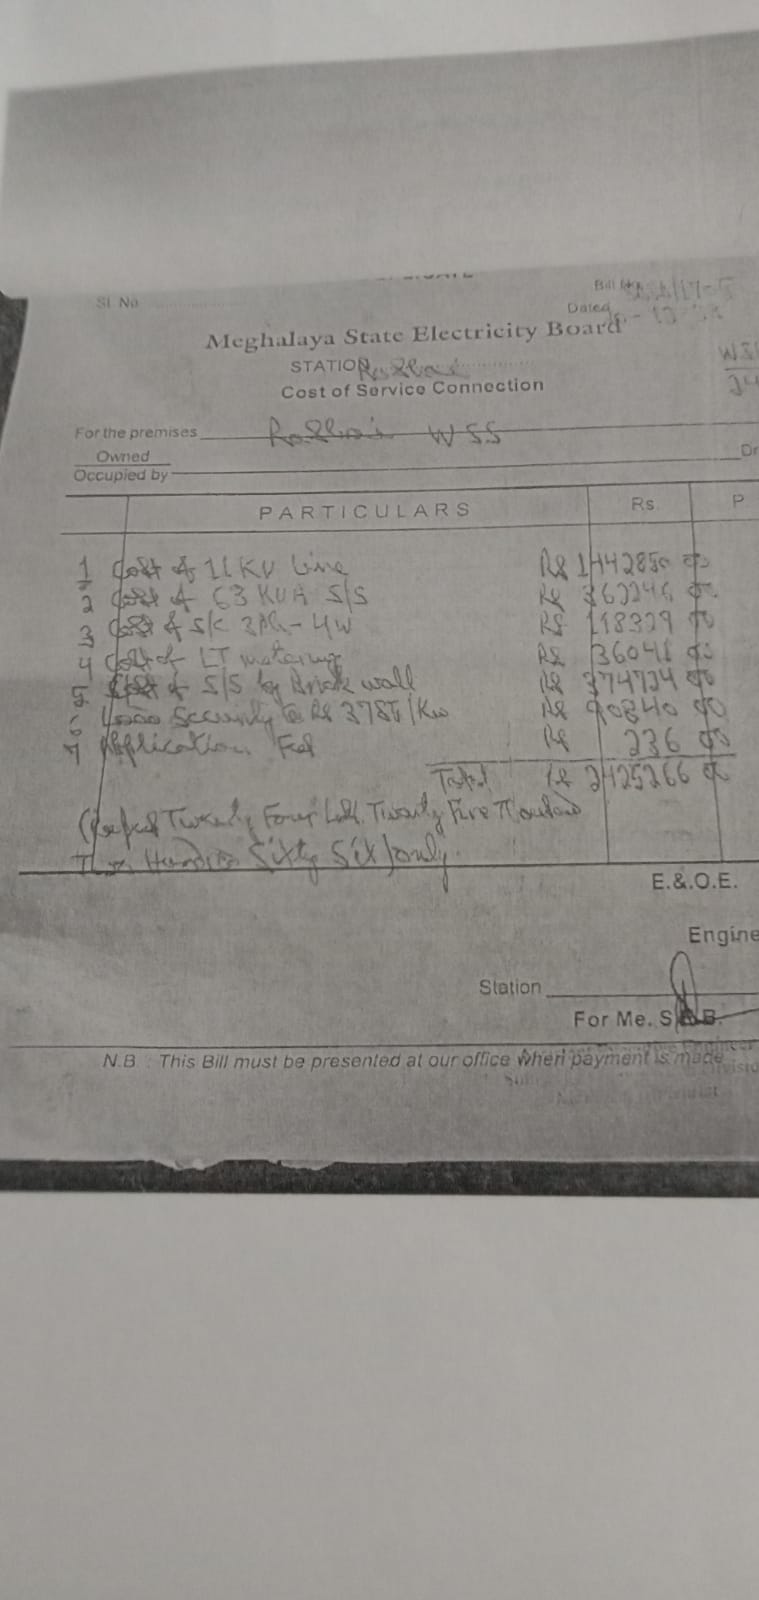 Sl. No.
Bill No.
Dated
Meghalaya State Electricity Board
STATION
Cost of Service Connection
For the premises WSS
Owned
Occupied by Dr
PARTICULARS Rs. P
1 Cost of 11 KV Line Rs 1442850 00
2 Cost of 63 KVA S/S Rs 362246 00
3 Cost of S/C 3Ph-4W Rs 118329 00
4 Cost of LT metering Rs 36041 00
5 Cost of S/S by Brick wall Rs 374724 00
6 Load Security @ Rs 3785/KW Rs 90840 00
7 Application Fee Rs 236 00
Total Rs 2425266 00
(Rupees Twenty Four Lakh Twenty Five Thousand
Hundred Sixty Six) only.
E.&.O.E.
Engine
Station
For Me. S.E.B.
N.B. : This Bill must be presented at our office when payment is made